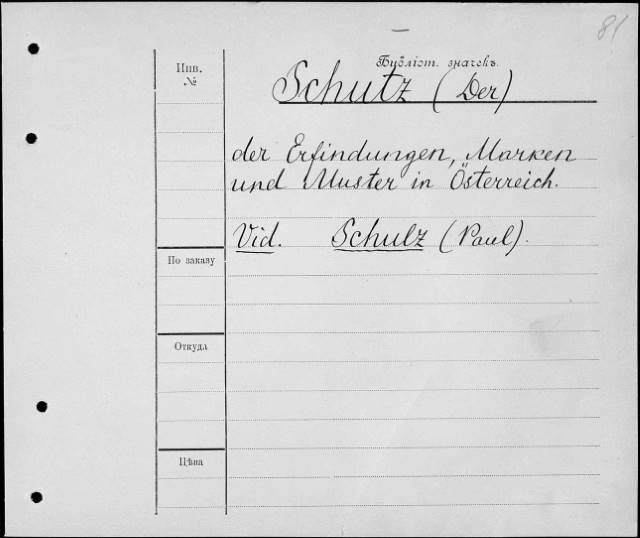 81
Бубліот. значекъ.
Инв.
№
Schutz (Der)
der Erfindungen, Marken
und Muster in Österreich.
Vid. Schulz (Paul).
По заказу
Откуда
Цѣна